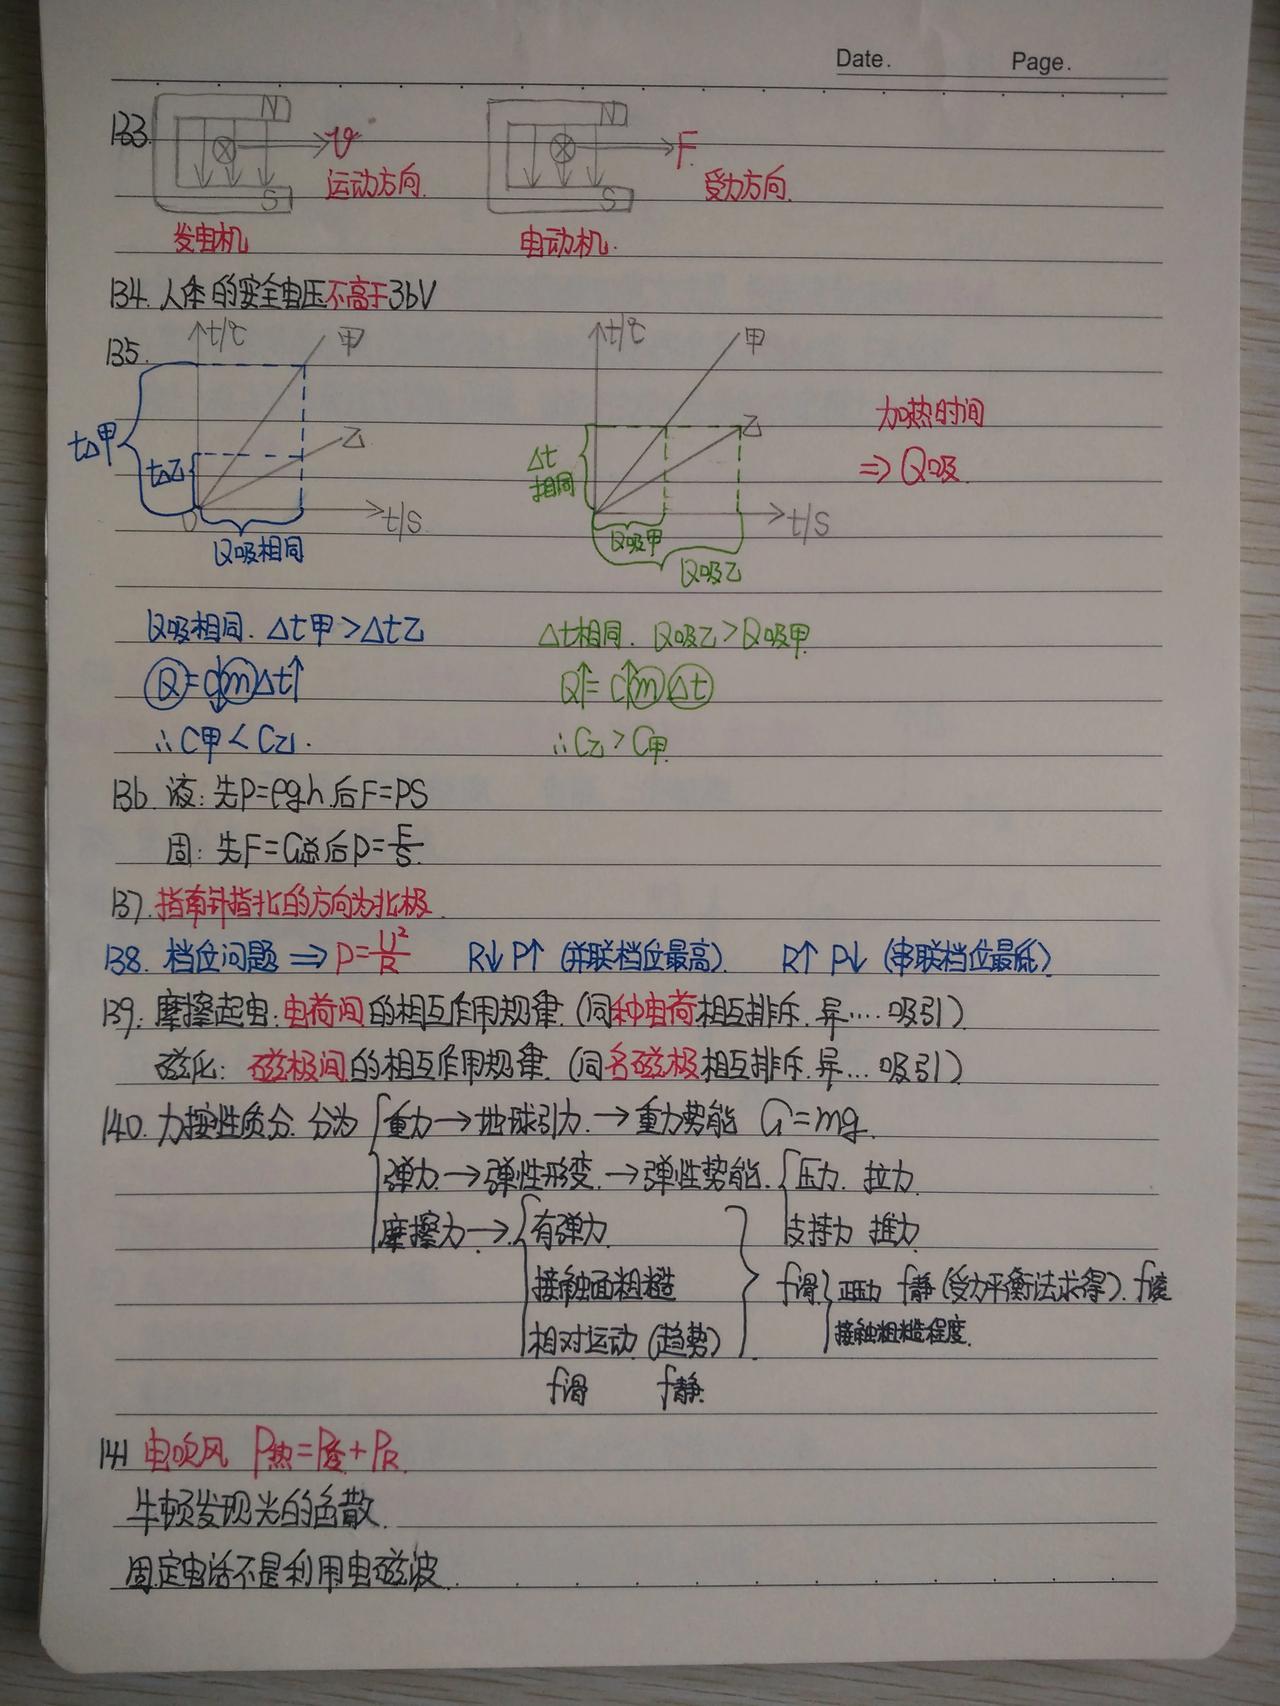 Date. Page.
133. N S v 运动方向. N S F 受力方向.
发电机 电动机.
134. 人体的安全电压不高于36V
135. t/℃ 甲 t/℃ 甲
t△甲 t△乙 乙 Δt相同 乙 加热时间
⇒Q吸
0 t/S t/S
Q吸相同 Q吸甲 Q吸乙
Q吸相同. Δt甲>Δt乙 Δt相同. Q吸乙>Q吸甲.
Q=c↓mΔt↑ Q↑=c↑mΔt
∴C甲<C乙. ∴C乙>C甲.
136. 液: 先P=ρgh.后F=PS
固: 先F=G总后p=F/S.
137. 指南针指北的方向为北极.
138. 档位问题⇒P=U²/R R↓P↑(并联档位最高). R↑P↓(串联档位最低)
139. 摩擦起电:电荷间的相互作用规律.(同种电荷相互排斥.异....吸引)
磁化: 磁极间的相互作用规律.(同名磁极相互排斥.异...吸引)
140. 力按性质分.分为 重力→地球引力.→重力势能 G=mg.
弹力→弹性形变.→弹性势能. 压力. 拉力.
摩擦力→ 有弹力. 支持力 推力.
接触面粗糙 f滑 正压力 f静(受力平衡法求得). f滚
相对运动(趋势) 接触粗糙程度.
f滑 f静.
141 电吹风 P热=P总+PR.
牛顿发现光的色散.
固定电话不是利用电磁波.